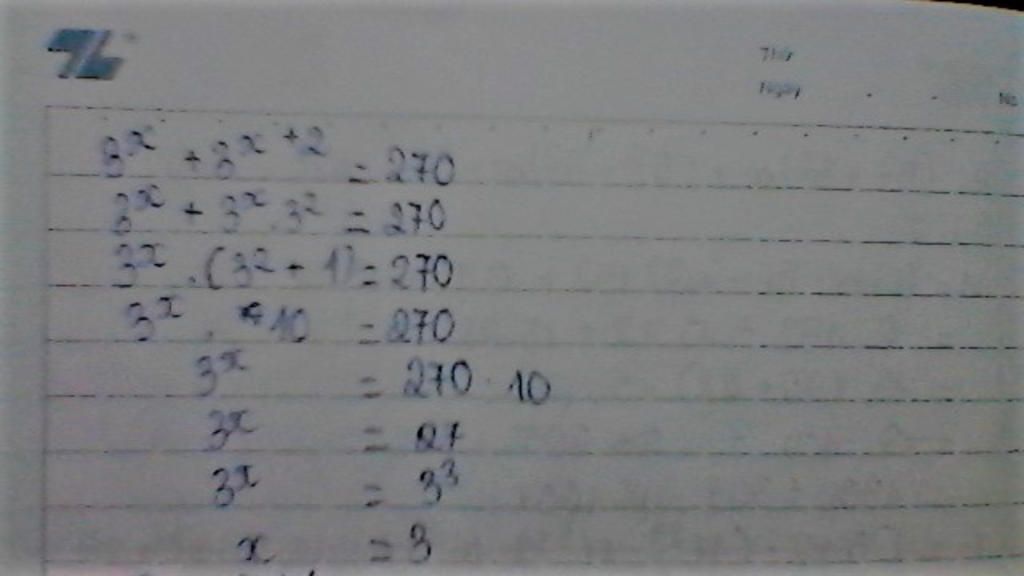 Thứ
Ngày
No
3^x + 3^x+2 = 270
3^x + 3^x . 3^2 = 270
3^x . (3^2 + 1) = 270
3^x . 10 = 270
3^x = 270 : 10
3^x = 27
3^x = 3^3
x = 3